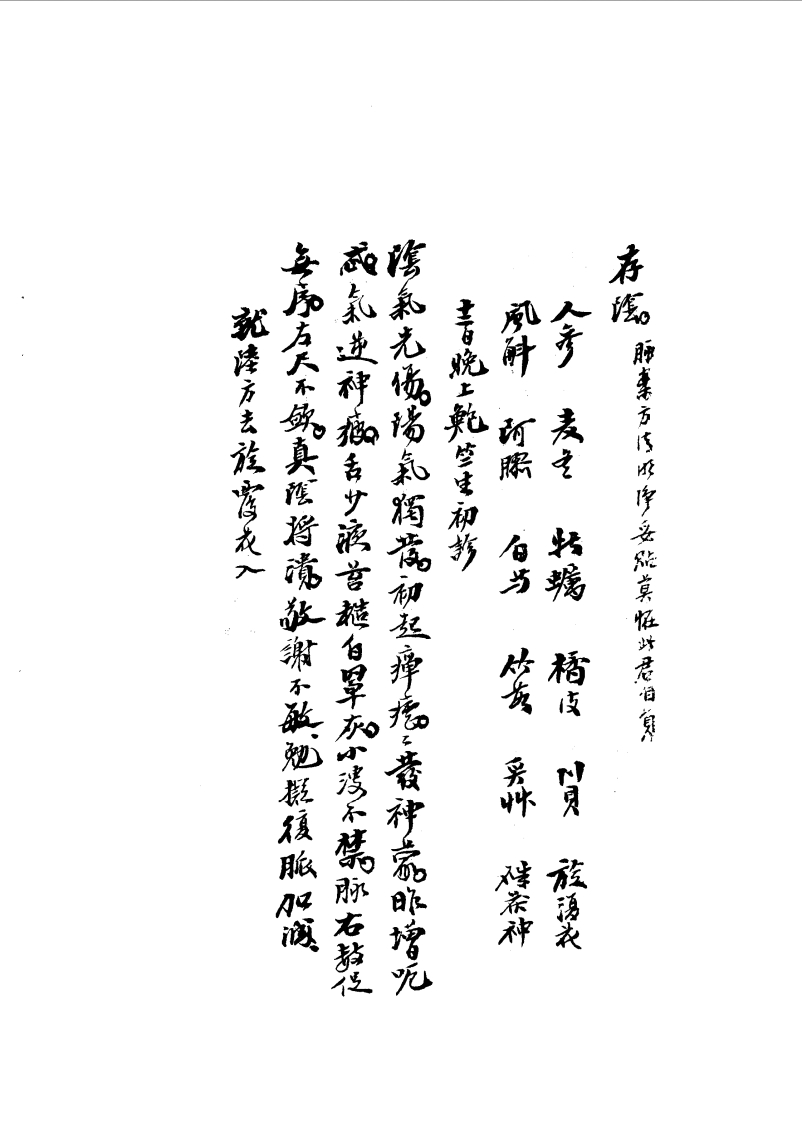 存陰 脈案方清明淨妥貼莫怪此君自負
人參 麦冬 牡蠣 橘皮 川貝 旋覆花
風斛 阿膠 白芍 竹茹 吳艸 硃茯神
十二日晚上鮑竺生初診
陰氣先傷陽氣獨發初起癉瘧〻發神蒙昨增呃
忒氣逆神痴舌少液苔糙白罩灰小溲不禁脉右數促
無序左尺不斂真陰將潰敬謝不敏勉擬復脈加減
就陸方去旋覆花入